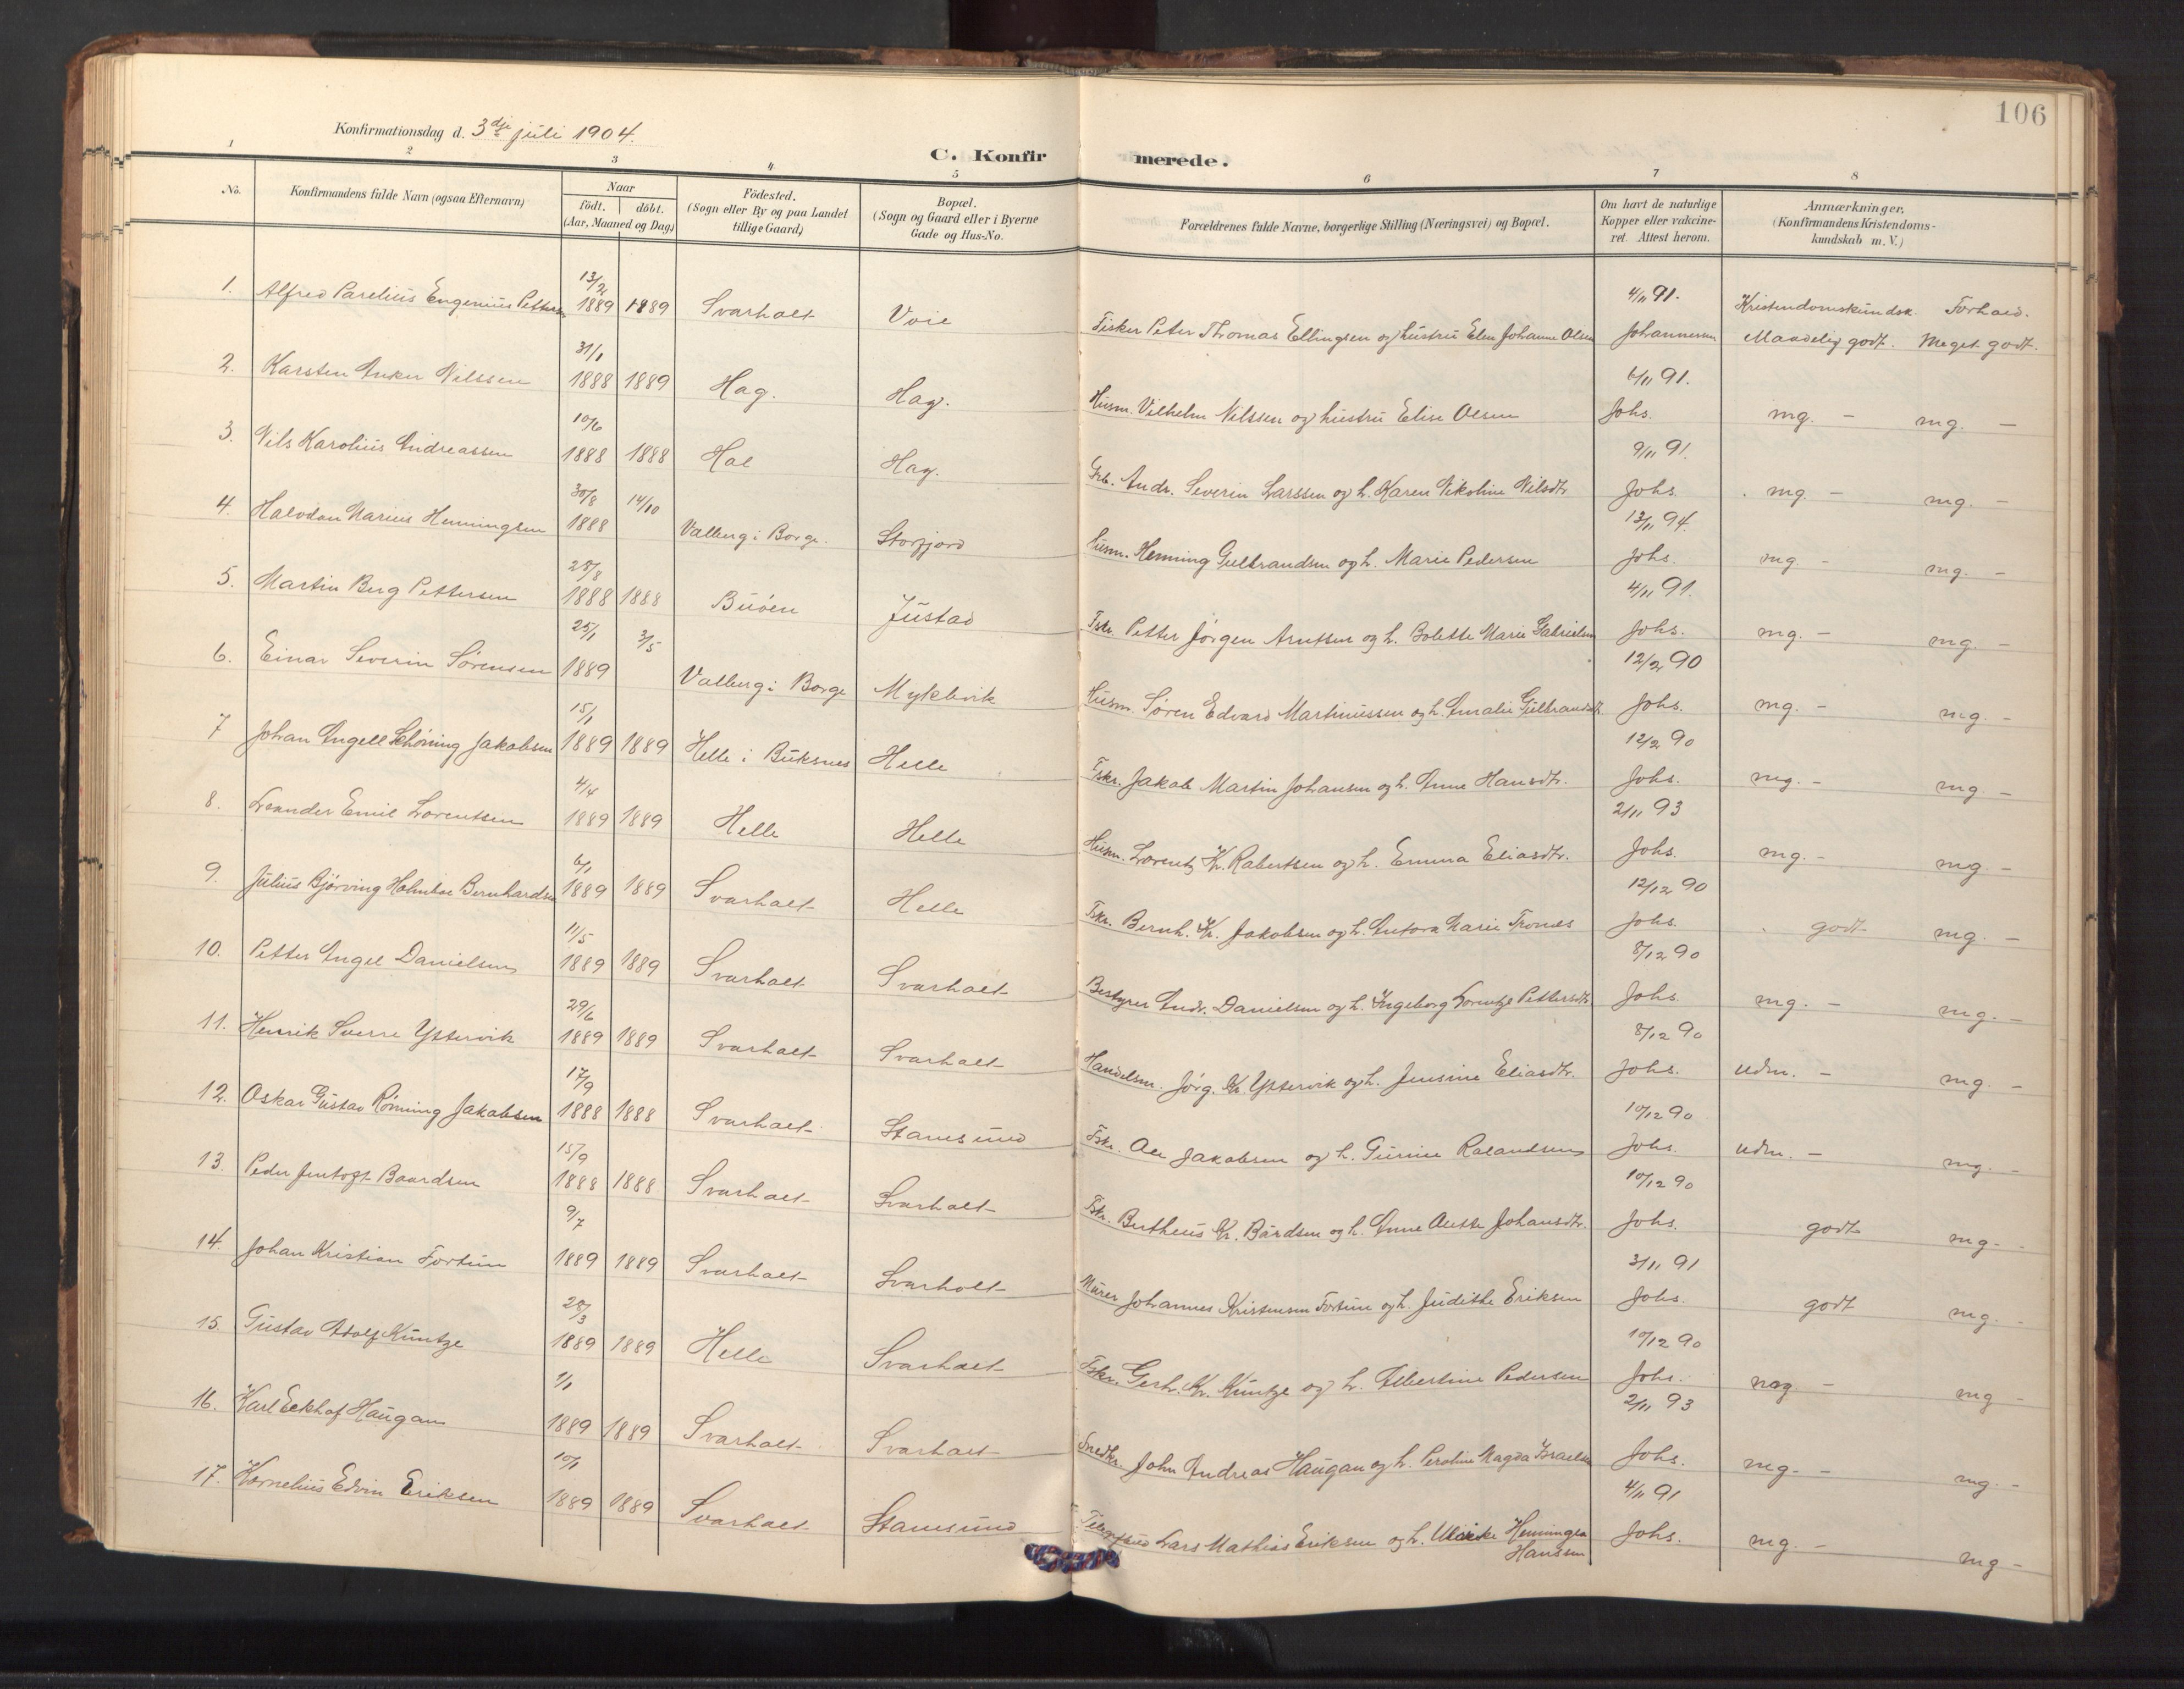 106
Konfirmationsdag d. 3dje juli 1904.
C. Konfirmerede.
1 2 3 4 5 6 7 8
No. Konfirmandens fulde Navn (ogsaa Efternavn) Naar födt. döbt. (Aar, Maaned og Dag) Födested. (Sogn eller By og paa Landet tillige Gaard) Bopæl. (Sogn og Gaard eller i Byerne Gade og Hus-No. Forældrenes fulde Navne, borgerlige Stilling (Næringsvei) og Bopæl. Om havt de naturlige Kopper eller vakcineret. Attest herom. Anmærkninger. (Konfirmandens Kristendomskundskab m. V.)
1. Alfred Parelius Eugenius Pettersen 13/2 1889 1889 Svarholt Voie Fisker Peter Thomas Ellingsen og hustru Elen Johanne Olsen 4/11 91. Johannessen Kristendomskundsk. Maadelig godt. Forhold. Meget godt.
2. Karsten Anker Nilssen 31/1 1888 1889 Hag. Hag. Husm. Vilhelm Nilssen og hustru Elise Olsen 6/11 91. Johs. mg. - mg. -
3. Nils Karolius Andreassen 10/6 1888 1888 Hol Hag. Grb. Andr. Severin Larssen og h. Karen Nikoline Nilsdtr. 9/11 91. Johs. mg. - mg. -
4. Halvdan Marius Henningsen 30/8 1888 14/10 Valberg i Borge. Storfjord Husm. Henning Gulbrandsen og h. Marie Pedersen 13/11 94. Johs. mg - mg. -
5. Martin Berg Pettersen 28/8 1888 1888 Buöen Justad Fskr. Petter Jörgen Arntsen og h. Bolette Marie Gabrielsen 4/11 91. Johs. mg. - mg. -
6. Einar Severin Sörensen 25/1 1889 3/5 Valberg i Borge Myklevik Husm. Sören Edvard Martinussen og h. Amalie Gulbrandsdtr. 12/2 90 Johs. mg. - mg. -
7 Johan Angell Schöning Jakobsen 15/1 1889 1889 Helle i Buksnes Helle Fskr. Jakob Martin Johansen og h. Anne Hansdtr. 12/2 90 Johs. mg. - mg -
8. Leander Emil Lorentsen 4/4 1889 1889 Helle Helle Husm. Lorentz Kr. Robertsen og h. Emma Eliasdtr. 2/11 93 Johs. mg. - mg -
9. Julius Björving Holmboe Bernhardsen 6/1 1889 1889 Svarholt Helle Fskr. Bernh. Kr. Jakobsen og h. Antora Marie Trones 12/12 90 Johs. godt mg. -
10. Petter Angel Danielsen 11/5 1889 1889 Svarholt Svarholt Bestyrer Andr. Danielsen og h. Ingeborg Lorentze Pettersdtr 8/12 90 Johs. mg. - mg. -
11. Henrik Sverre Yttervik 29/6 1889 1889 Svarholt Svarholt Handelsm. Jörg. Kr. Yttervik og h. Jensine Eliasdtr. 8/12 90 Johs. udm. - mg. -
12. Oskar Gustav Römming Jakobsen 17/9 1888 1888 Svarholt Stamsund Fskr. Ole Jakobsen og h. Gurine Rolandsen 10/12 90 Johs. udm. - mg. -
13. Peder Jentoft Baardsen 15/9 1888 1888 Svarholt Svarholt Fskr. Bertheus Kr. Bårdsen og h. Anne Johansdtr. 10/12 90 Johs. godt mg. -
14. Johan Kristian Fortun 9/7 1889 1889 Svarholt Svarholt Murer Johannes Kristensen Fortun og h. Judithe Eriksen 3/11 91 Johs. godt mg. -
15. Gustav Adolf Kuntze 28/3 1889 1889 Helle Svarholt Fskr. Gerh. Kr. Kuntze og h. Albertine Pedersen 10/12 90 Johs. mg - mg -
16. Karl Eckhof Haugan 1/1 1889 1889 Svarholt Svarholt Snedkr. John Andreas Haugan og h. Peroline Magda Israelsen 2/11 93 Johs. mg. - mg. -
17. Kornelius Edvin Eriksen 10/1 1889 1889 Svarholt Stamsund Lars Mathias Eriksen og h. Ulrikke Henningea Hanssen 4/11 91 Johs. mg. - mg -